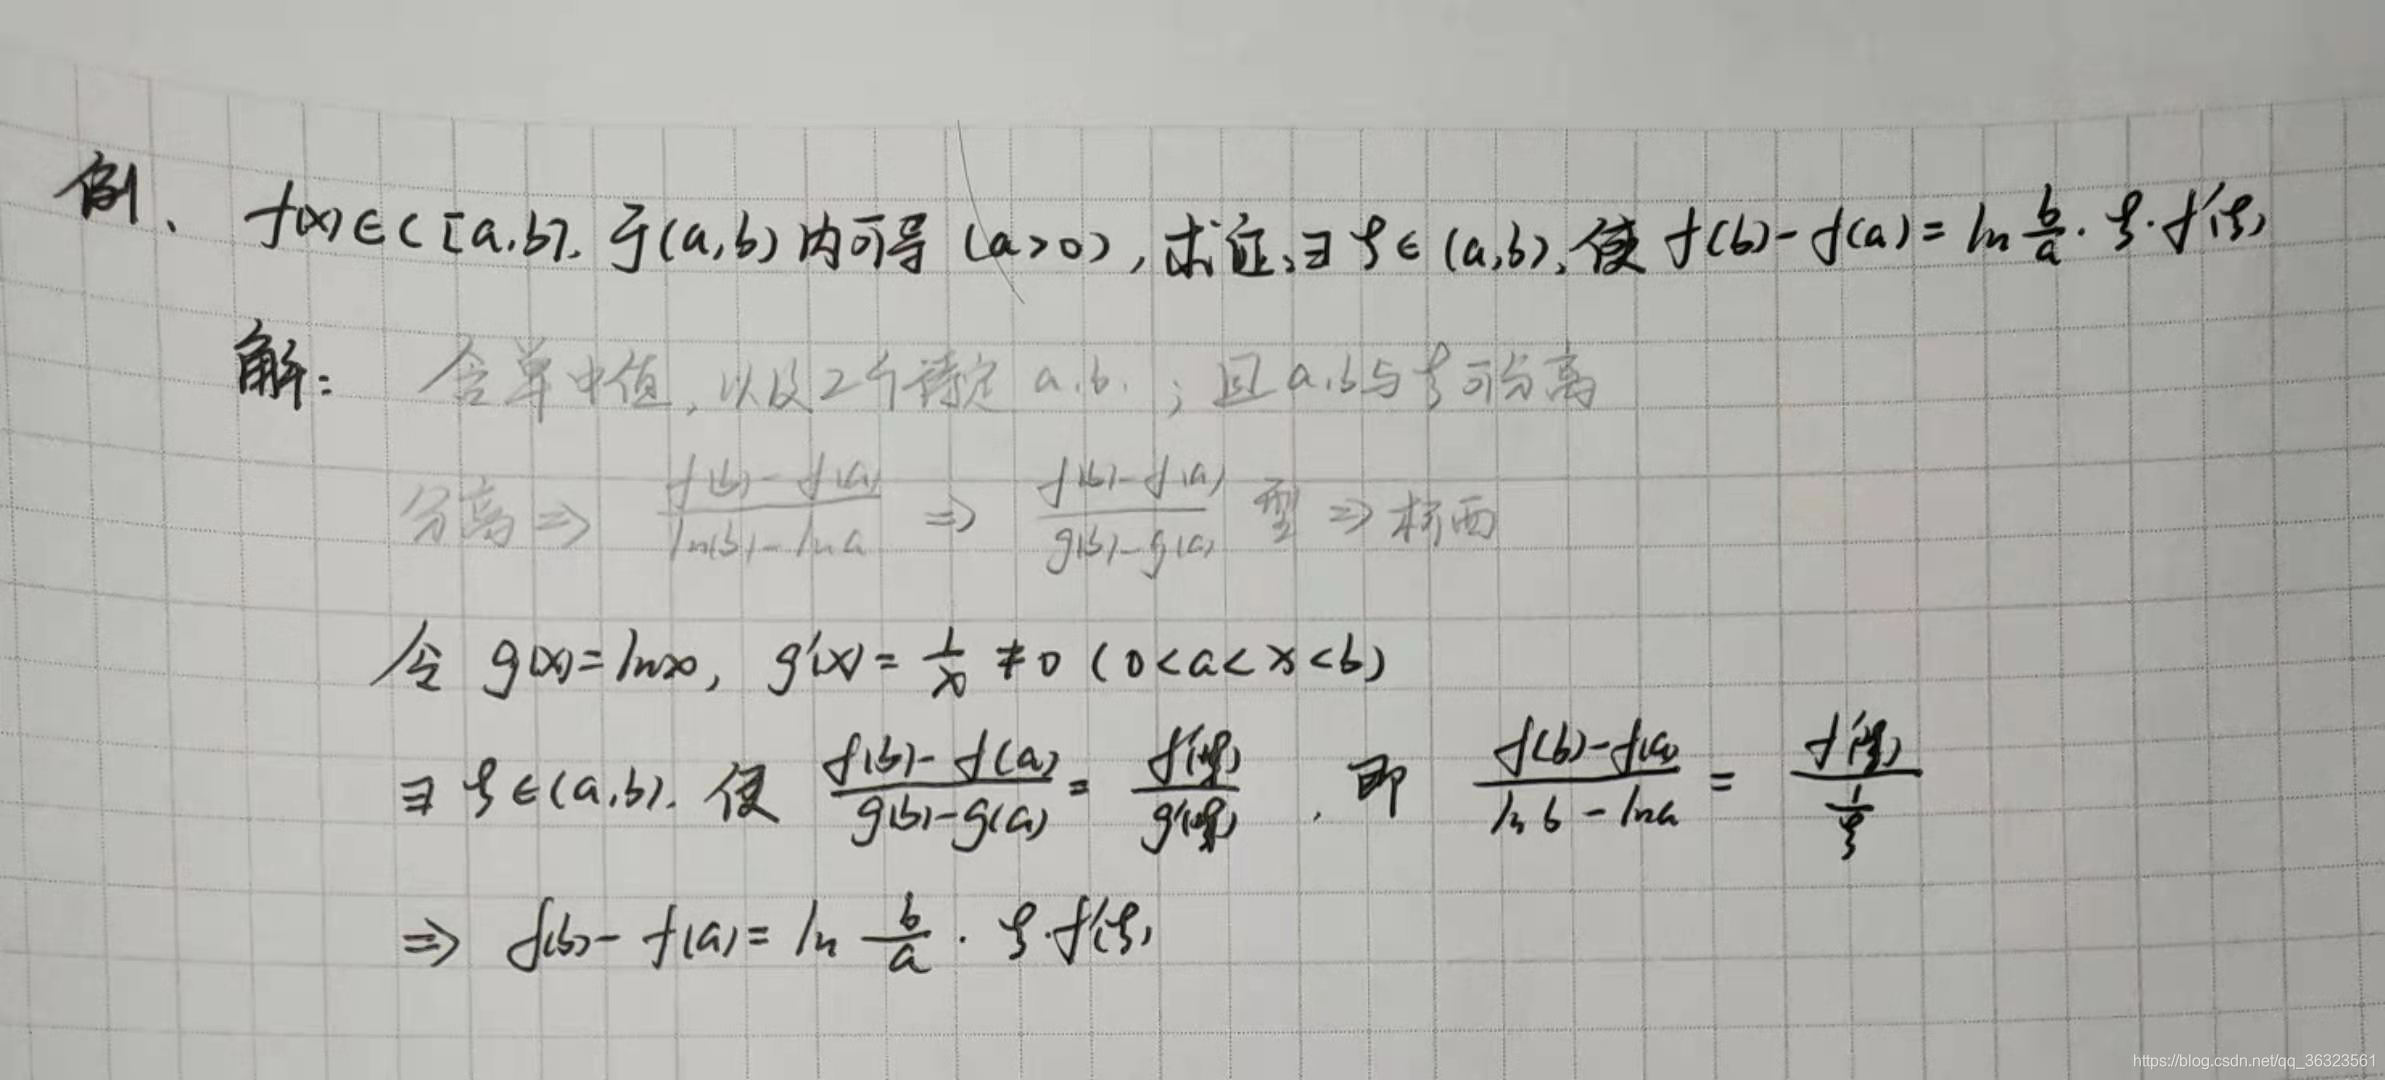 例、 f(x)∈C[a,b]. 于(a,b)内可导 (a>0), 求证:∃ξ∈(a,b), 使 f(b)-f(a)=ln b/a·ξ·f'(ξ)
解: 含单中值, 以及2个待定 a.b. ; 且a.b与ξ可分离
分离⇒ (f(b)-f(a))/(ln(b)-ln a) ⇒ (f(b)-f(a))/(g(b)-g(a)) 型 ⇒ 柯西
令 g(x)=lnx, g'(x)=1/x≠0 (0<a<x<b)
∃ξ∈(a,b). 使 (f(b)-f(a))/(g(b)-g(a))=f'(ξ)/g'(ξ), 即 (f(b)-f(a))/(ln b-lna)=f'(ξ)/(1/ξ)
⇒ f(b)-f(a)=ln b/a·ξ·f'(ξ)
https://blog.csdn.net/qq_36323561